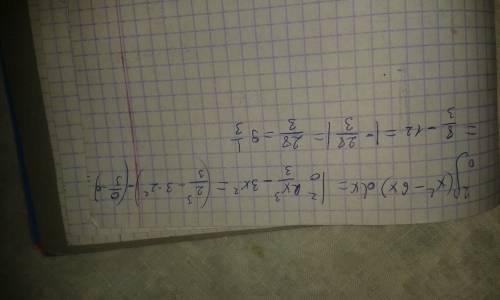 ∫₀² (x² - 6x) dx = x³/3 - 3x² |₀² = (2³/3 - 3·2²) - (0/3 - 0) =
= 8/3 - 12 = |-28/3| = 28/3 = 9 1/3